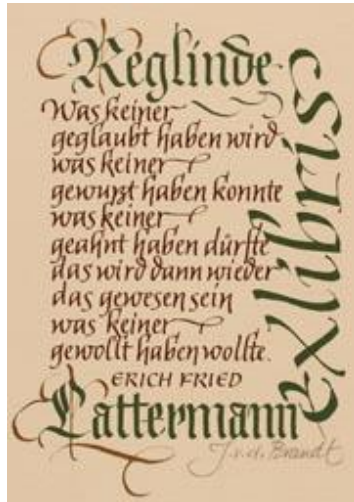 Reglinde
Was keiner
geglaubt haben wird
was keiner
gewußt haben konnte
was keiner
geahnt haben dürfte
das wird dann wieder
das gewesen sein
was keiner
gewollt haben wollte.
ERICH FRIED
Lattermann
exlibris
J.v.d. Brandt